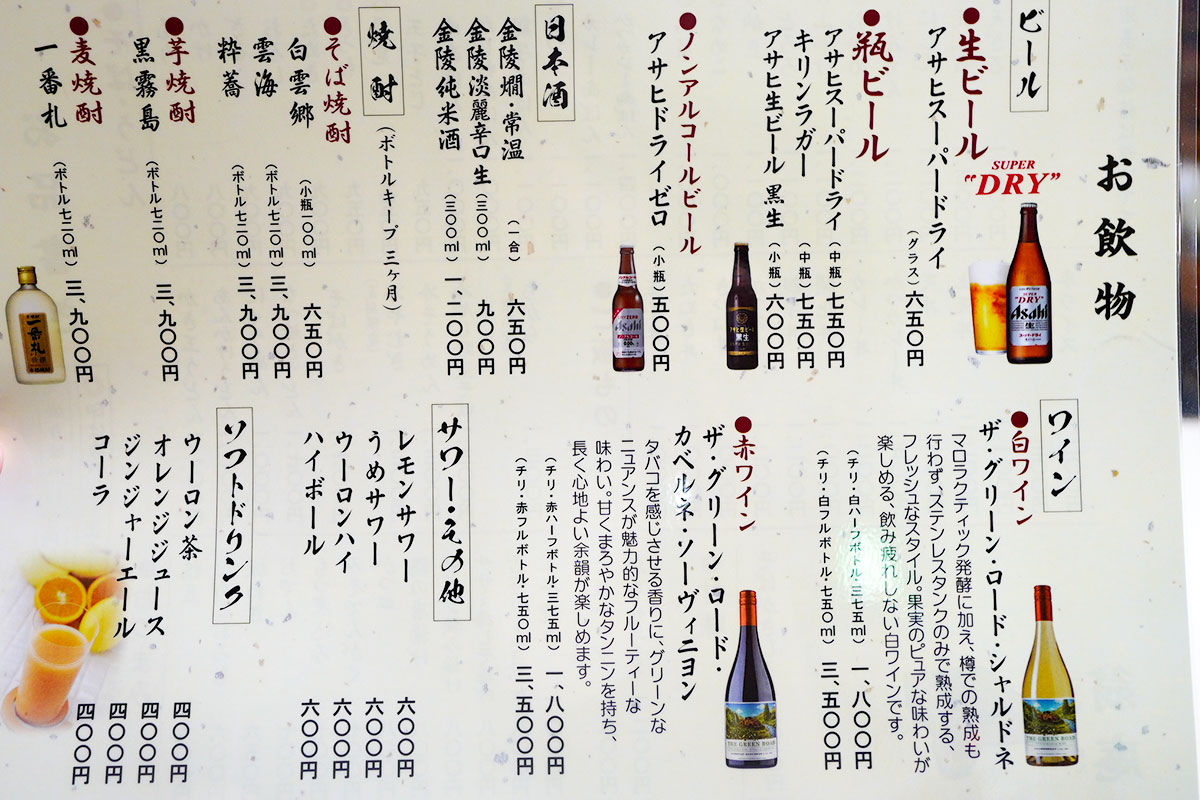 お飲物
ビール
●生ビール
アサヒスーパードライ
(グラス)六五〇円
SUPER
"DRY"
SUPER
"DRY"
Asahi
●瓶ビール
アサヒスーパードライ(中瓶)七五〇円
キリンラガー(中瓶)七五〇円
アサヒ生ビール 黒生(小瓶)六〇〇円
黒生
●ノンアルコールビール
アサヒドライゼロ(小瓶)五〇〇円
Asahi
日本酒
金陵燗・常温(一合)六五〇円
金陵淡麗辛口生(三〇〇ml)九〇〇円
金陵純米酒(三〇〇ml)一、二〇〇円
焼酎(ボトルキープ三ヶ月)
●そば焼酎
(小瓶一〇〇ml)六五〇円
白雲郷(ボトル七二〇ml)三、九〇〇円
雲海
粋蕎(ボトル七二〇ml)三、九〇〇円
●芋焼酎
黒霧島(ボトル七二〇ml)三、九〇〇円
●麦焼酎
一番札(ボトル七二〇ml)三、九〇〇円
一番札
ワイン
●白ワイン
ザ・グリーン・ロード・シャルドネ
マロラクティック発酵に加え、樽での熟成も
行わず、ステンレスタンクのみで熟成する、
フレッシュなスタイル。果実のピュアな味わいが
楽しめる、飲み疲れしない白ワインです。
(チリ・白ハーフボトル・三七五ml)一、八〇〇円
(チリ・白フルボトル・七五〇ml)三、五〇〇円
THE GREEN ROAD
●赤ワイン
ザ・グリーン・ロード・
カベルネ・ソーヴィニヨン
タバコを感じさせる香りに、グリーンな
ニュアンスが魅力的なフルーティーな
味わい。甘くまろやかなタンニンを持ち、
長く心地よい余韻が楽しめます。
(チリ・赤ハーフボトル・三七五ml)一、八〇〇円
(チリ・赤フルボトル・七五〇ml)三、五〇〇円
THE GREEN ROAD
サワー・その他
レモンサワー 六〇〇円
うめサワー 六〇〇円
ウーロンハイ 六〇〇円
ハイボール 六〇〇円
ソフトドリンク
ウーロン茶 四〇〇円
オレンジジュース 四〇〇円
ジンジャーエール 四〇〇円
コーラ 四〇〇円